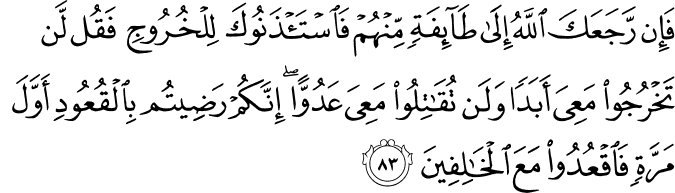 فَإِن رَّجَعَكَ ٱللَّهُ إِلَىٰ طَآئِفَةٖ مِّنۡهُمۡ فَٱسۡتَـٔۡذَنُوكَ لِلۡخُرُوجِ فَقُل لَّن
تَخۡرُجُواْ مَعِيَ أَبَدٗا وَلَن تُقَٰتِلُواْ مَعِيَ عَدُوًّاۖ إِنَّكُمۡ رَضِيتُم بِٱلۡقُعُودِ أَوَّلَ
مَرَّةٖ فَٱقۡعُدُواْ مَعَ ٱلۡخَٰلِفِينَ ٨٣